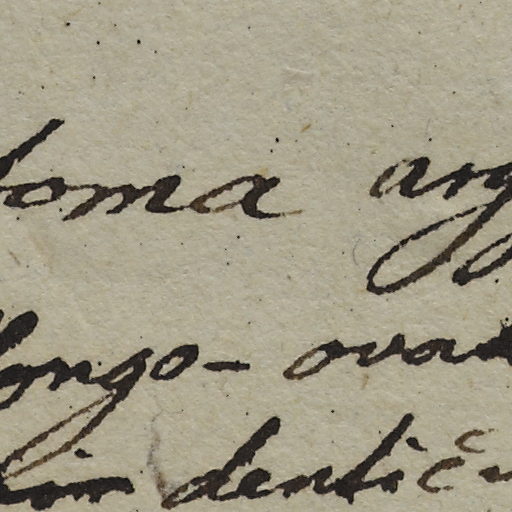 toma arg
longo-ova
dentic